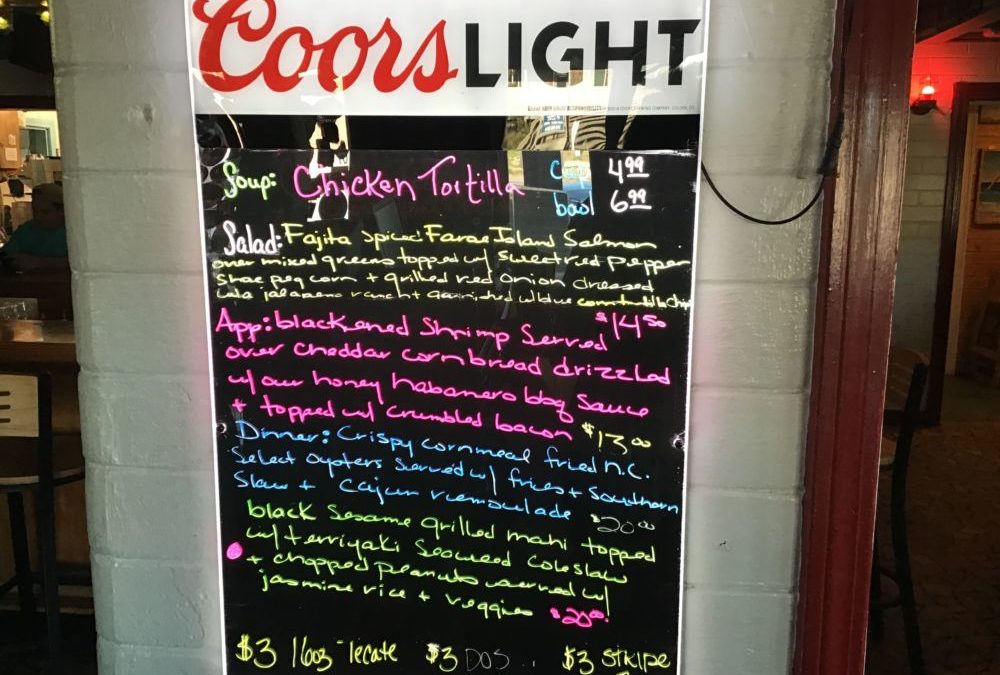 Coors LIGHT
Soup: Chicken Tortilla cup 4.99
bowl 6.99
Salad: Fajita Spiced Faroe Island Salmon
over mixed greens topped w/ sweet red pepper
corn + grilled red onion dressed
w/ a jalapeno ranch + garnished w/ blue corn tortilla chips
$14.50
App: blackened Shrimp Served
over cheddar cornbread drizzled
w/ our honey habanero bbq sauce
+ topped w/ crumbled bacon $13.00
Dinner: Crispy cornmeal fried n.c.
Select oysters served w/ fries + Southern
Slaw + Cajun remoulade $20.00
black Sesame grilled mahi topped
w/ terriyaki Seaweed coleslaw
+ chopped peanuts served w/
jasmine rice + veggies $20.00
$3 16oz Tecate $3 DOS .. $3 STRIPE